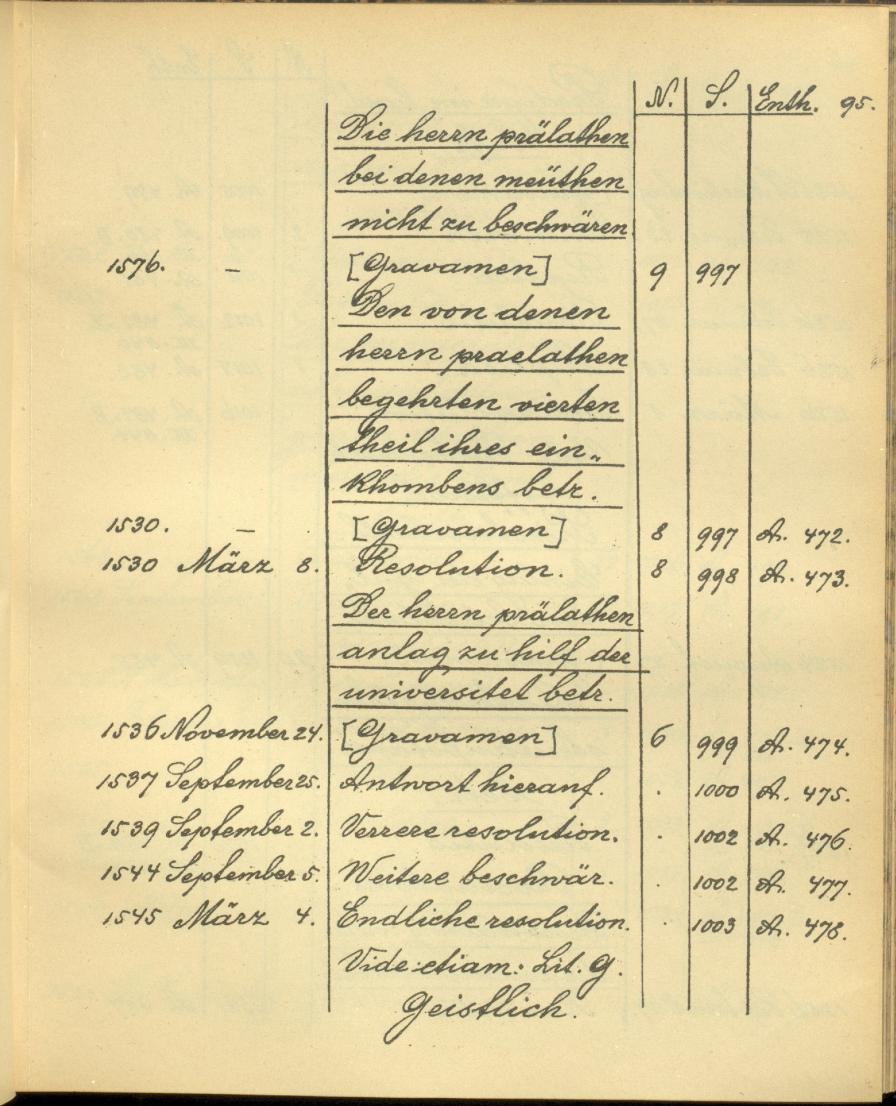 N. S. Enth. 95.
Die herrn prälathen
bei denen meüthen
nicht zu beschwären
1576. – [Gravamen] 9 997
Den von denen
herrn praelathen
begehrten vierten
theil ihres ein„
khombens betr.
1530. – [Gravamen] 8 997 A. 472.
1530 März 8. Resolution. 8 998 A. 473.
Der herrn prälathen
anlag zu hilf der
universitet betr.
1536 November 24. [Gravamen] 6 999 A. 474.
1537 September 25. Antwort hierauf. . 1000 A. 475.
1539 September 2. Verrere resolution. . 1002 A. 476.
1544 September 5. Weitere beschwär. . 1002 A. 477.
1545 März 4. Endliche resolution. . 1003 A. 478.
Vide etiam: Lit. G.
Geistlich.